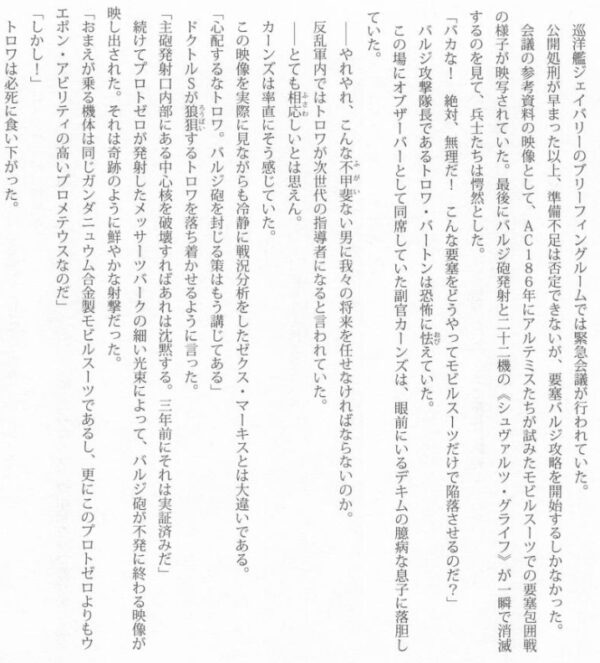 巡洋艦ジェイバリーのブリーフィングルームでは緊急会議が行われていた。
公開処刑が早まった以上、準備不足は否定できないが、要塞バルジ攻略を開始するしかなかった。
会議の参考資料の映像として、ＡＣ１８６年にアルテミスたちが試みたモビルスーツでの要塞包囲戦
の様子が映写されていた。最後にバルジ砲発射と二十二機の《シュヴァルツ・グライフ》が一瞬で消滅
するのを見て、兵士たちは愕然とした。
「バカな！　絶対、無理だ！　こんな要塞をどうやってモビルスーツだけで陥落させるのだ？」
バルジ攻撃隊長であるトロワ・バートンは恐怖に怯おびえていた。
この場にオブザーバーとして同席していた副官カーンズは、眼前にいるデキムの臆病な息子に落胆し
ていた。
――やれやれ、こんな不甲斐ふがいない男に我々の将来を任せなければならないのか。
反乱軍内ではトロワが次世代の指導者になると言われていた。
――とても相応ふさわしいとは思えん。
カーンズは率直にそう感じていた。
この映像を実際に見ながらも冷静に戦況分析をしたゼクス・マーキスとは大違いである。
「心配するなトロワ。バルジ砲を封じる策はもう講じてある」
ドクトルＳが狼狽ろうばいするトロワを落ち着かせるように言った。
「主砲発射口内部にある中心核を破壊すればあれは沈黙する。三年前にそれは実証済みだ」
続けてプロトゼロが発射したメッサーツバークの細い光束によって、バルジ砲が不発に終わる映像が
映し出された。それは奇跡のように鮮やかな射撃だった。
「おまえが乗る機体は同じガンダニュウム合金製モビルスーツであるし、更にこのプロトゼロよりもウ
エポン・アビリティの高いプロメテウスなのだ」
「しかし！」
トロワは必死に食い下がった。